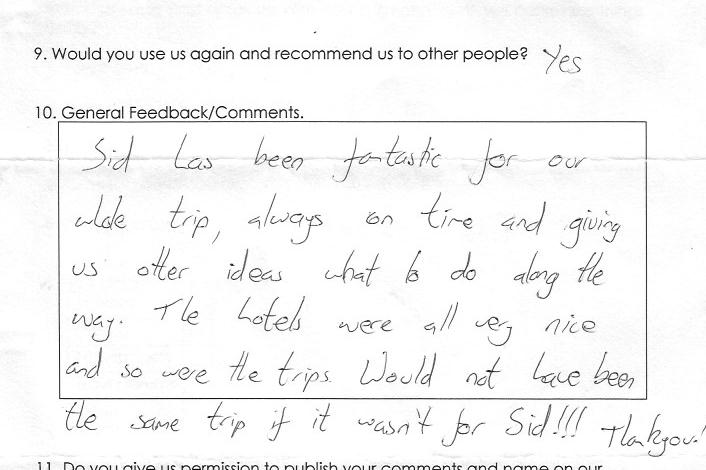 9. Would you use us again and recommend us to other people? Yes
10. General Feedback/Comments.
Sid has been fantastic for our
whole trip, always on time and giving
us other ideas what to do along the
way. The hotels were all very nice
and so were the trips. Would not have been
the same trip if it wasn't for Sid!!! Thankyou!
11. Do you give us permission to publish your comments and name on our